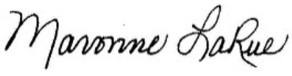 Maronne LaRue